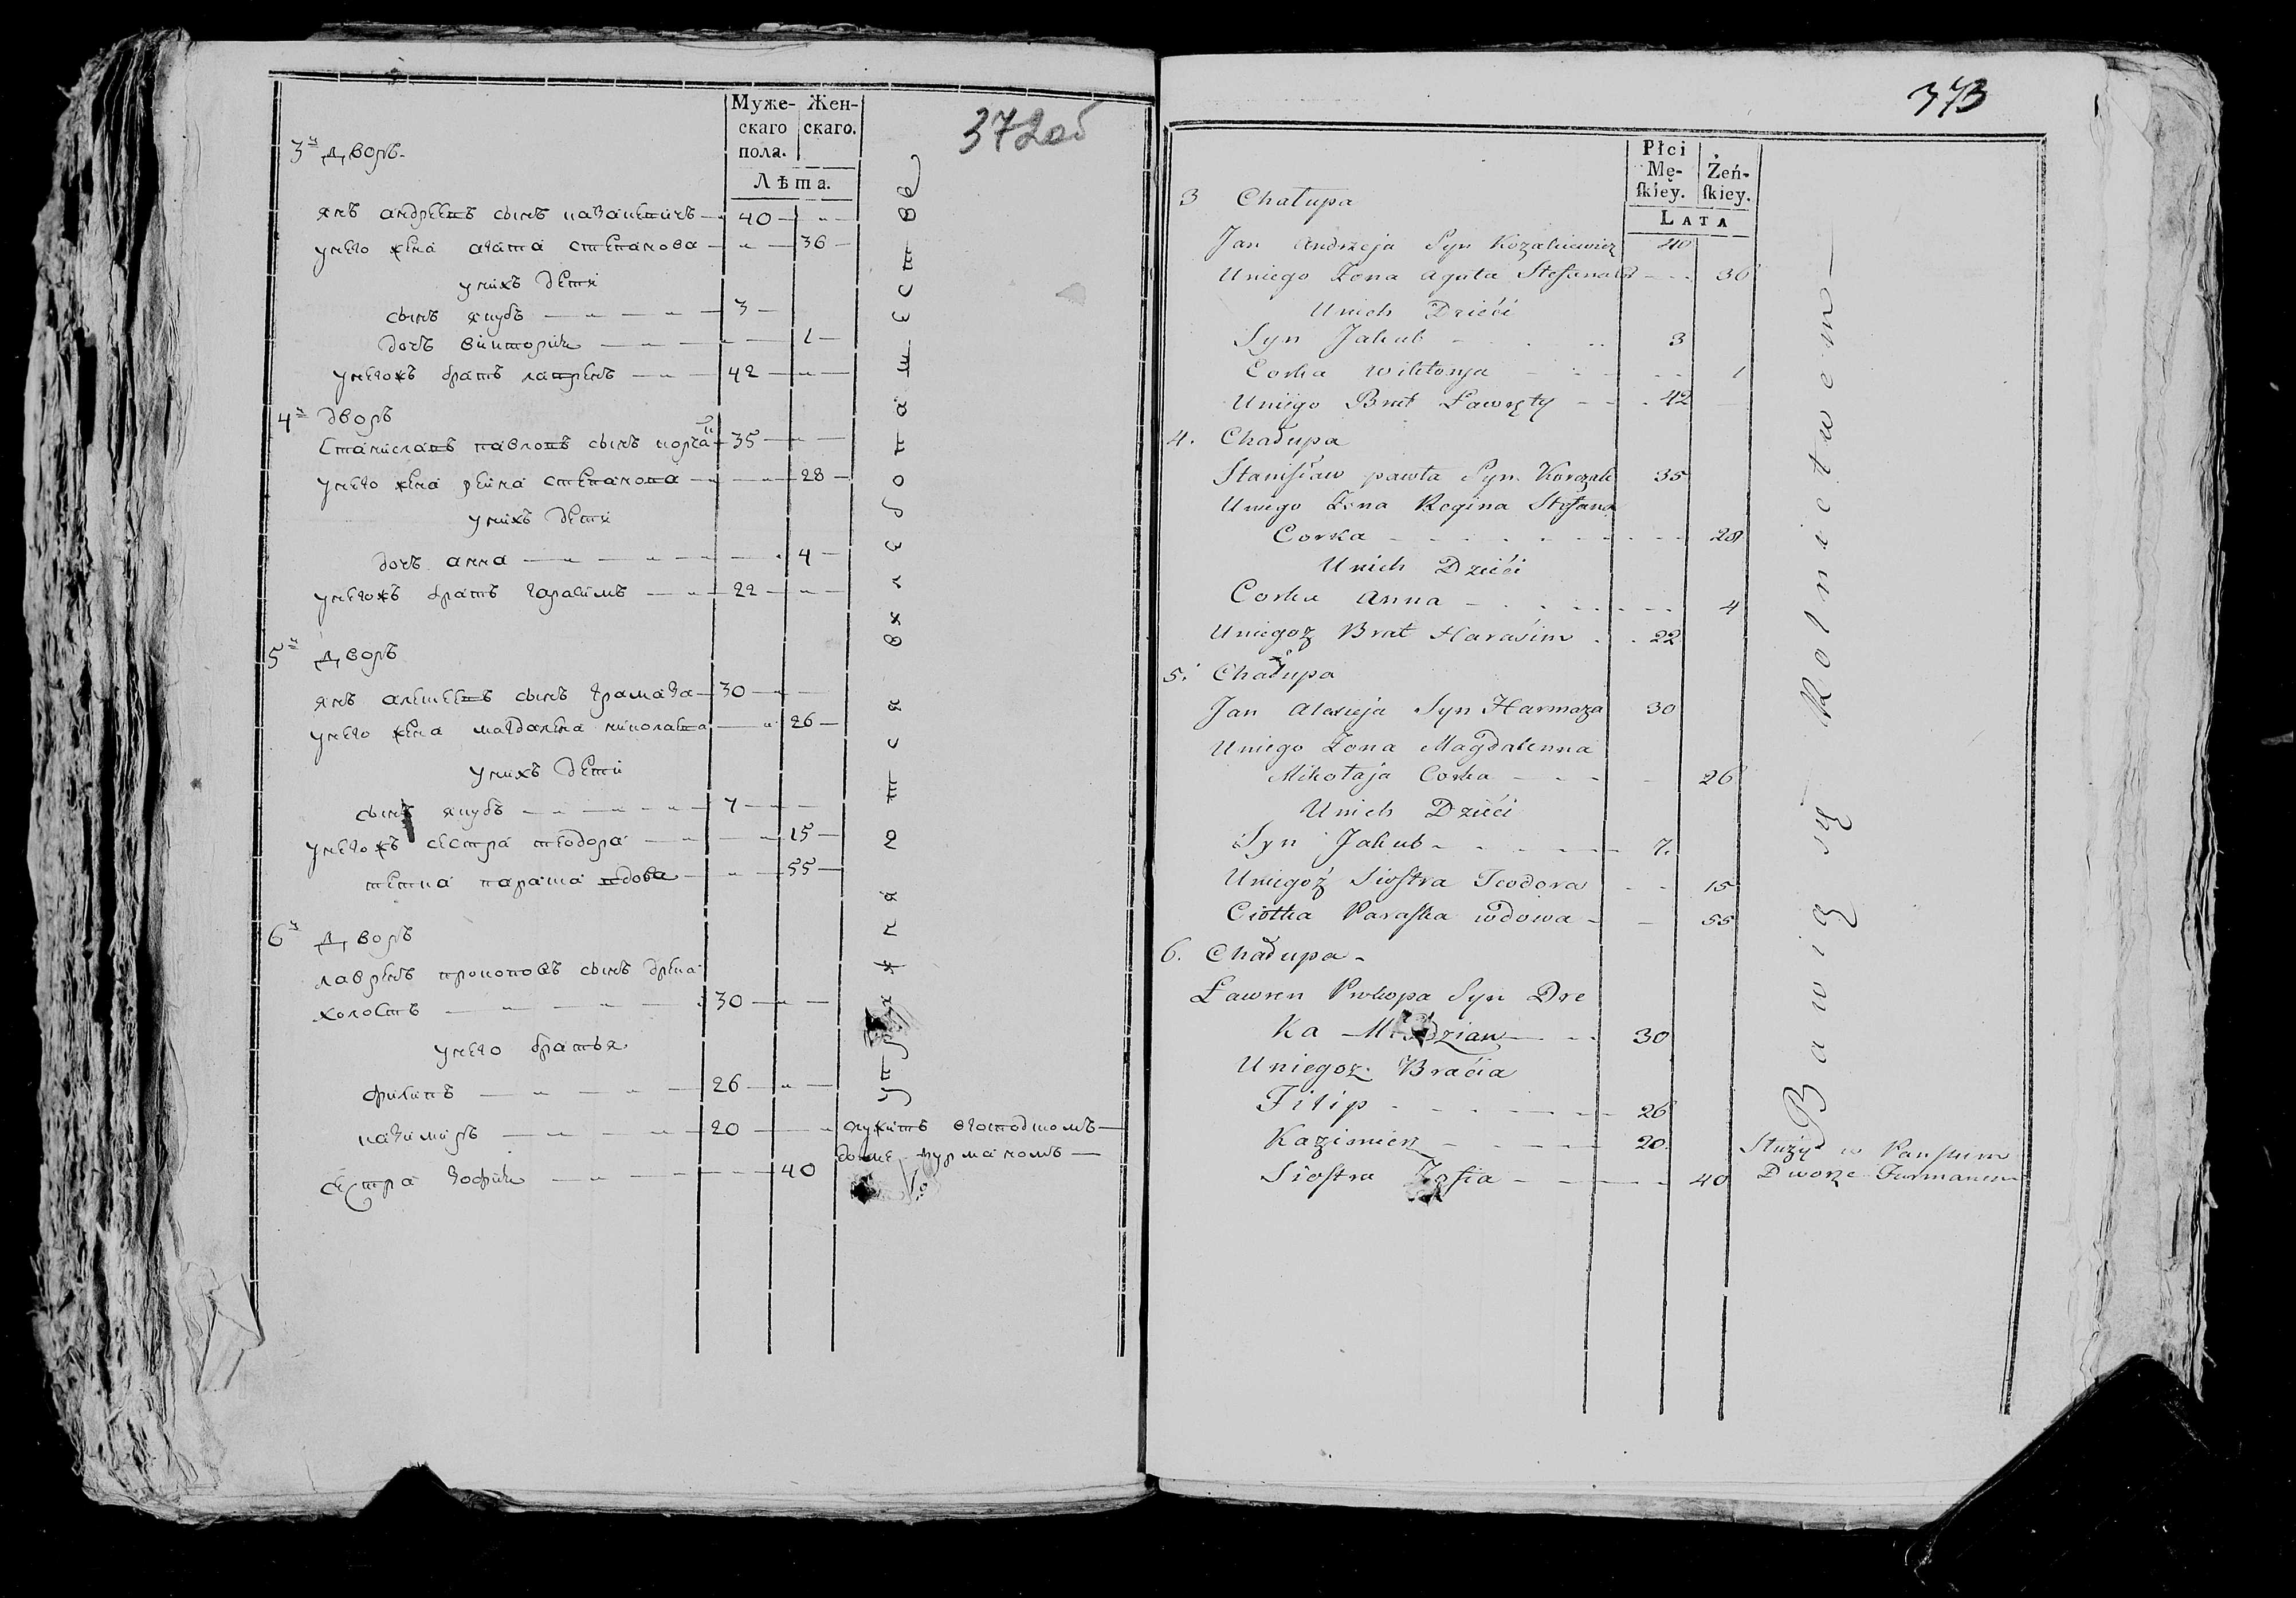 Муже- Жен-
скаго скаго.
пола.
Лѣта.
372об
3й дворъ.
янъ андреевъ сынъ казакевичъ 40
унего жена агата степанова 36
унихъ дети
сынъ якубъ 3
дочъ виктория 1
унегожъ братъ лавренъ 42
4й дворъ
Станиславъ павловъ сынъ корчак 35
унего жена рейна степанова 28
унихъ дети
дочъ анна 4
унегожъ братъ гарасимъ 22
5й дворъ
янъ алексеевъ сынъ грамаза 30
унего жена магдалена николаева 26
унихъ дети
сынъ якубъ 7
унегожъ сестра теодора 15
тетка параша вдова 55
6й дворъ
лаврень прокоповъ сынъ дрека
холостъ 30
унего братья
филипъ 26
казимиръ 20 служитъ вгосподскомъ
доме фурманомъ
сестра зофия 40
упражняются вхлебопашестве
373
Płci
Mę- Żeń-
ſkiey. ſkiey.
LATA
3 Chałupa
Jan Andrzeja Syn Kozakiewicz 40
Uniego Żona Agata Stefanowa 36
Unich Dzieći
Syn Jakub 3
Corka Wiktorya 1
Uniego Brat Ławręty 42
4. Chałupa
Stanisław pawła Syn Korczak 35
Uniego Żona Regina Stefana
Corka 28
Unich Dzieći
Corka Anna 4
Uniegoż Brat Harasim 22
5. Chałupa
Jan Alexieja Syn Harmaza 30
Uniego Żona Magdalenna
Mikołaja Corka 26
Unich Dzieći
Syn Jakub 7.
Uniegoż Siostra Teodora 15
Ciotka Paraska wdowa 55
6. Chałupa
Ławren Prokopa Syn Dre
Ka Młodzian 30
Uniegoż Braćia
Filip 26
Kazimierz 20. Służy w Panskim
Siostra Zofia 40 Dworze Furmanem
Bawią się Rolnictwem